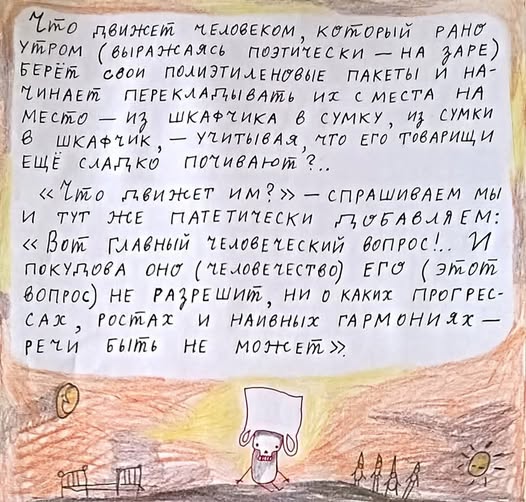 Что движет человеком, который рано
утром (выражаясь поэтически — на заре)
берёт свои полиэтиленовые пакеты и на-
чинает перекладывать их с места на
место — из шкафчика в сумку, из сумки
в шкафчик, — учитывая, что его товарищи
ещё сладко почивают?..
«Что движет им?» — спрашиваем мы
и тут же патетически добавляем:
«Вот главный человеческий вопрос!.. И
покудова оно (человечество) его (этот
вопрос) не разрешит, ни о каких прогрес-
сах, ростах и наивных гармониях —
речи быть не может».